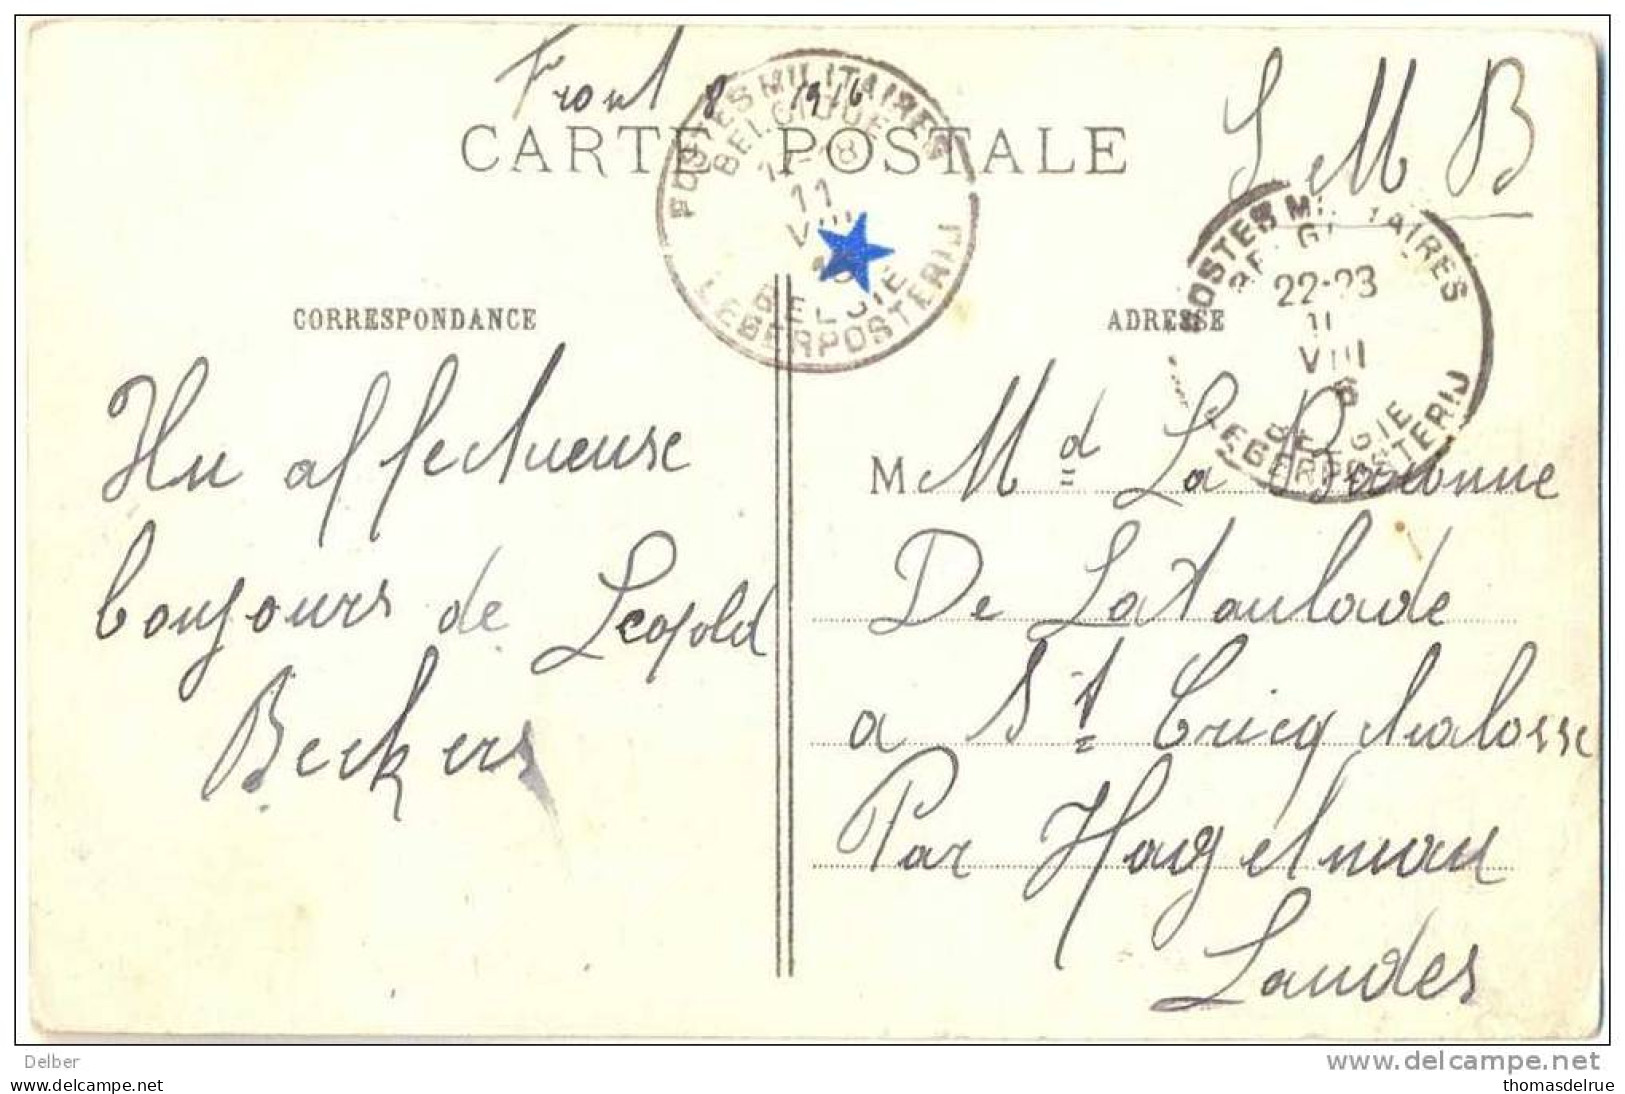 Front 8 1916
CARTE POSTALE
S M B
POSTES MILITAIRES
BELGIQUE
11
VIII
BELGIE
LEGERPOSTERIJ
POSTES MILITAIRES
22-23
11
VIII
BELGIE
LEGERPOSTERIJ
CORRESPONDANCE
ADRESSE
Un affectueuse
bonjours de Leopold
Beckers
M Md La Baronne
De Lataulade
a St Cricq Chalosse
Par Hagetmau
Landes
Delber
delcampe.net
thomasdelrue